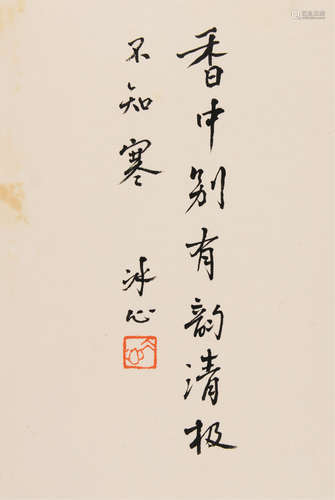 香中别有韵清极
不知寒
冰心